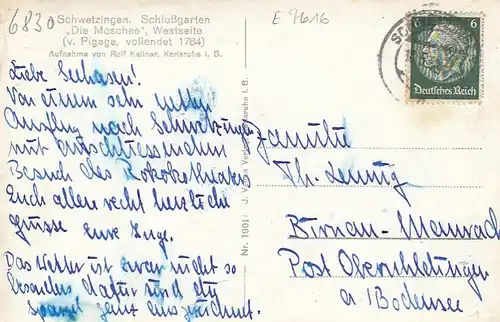 6830
E 7616
Schwetzingen. Schloßgarten
„Die Moschee", Westseite
(v. Pigage, vollendet 1784)
Aufnahme von Rolf Kellner, Karlsruhe i. B.
6 6
Deutsches Reich
Liebe Seehasen!
Von einem sehr netten
Ausflug nach Schwetzingen
mit anschliessendem
Besuch des Rokokotheaters
Euch allen recht herzliche
Grüsse Eure Inge.
Das Wetter ist zwar nicht so
besonders dafür sind die
Spargel ganz ausgezeichnet.
Nr. 1901
Familie
Th.
Birnau-Maurach
Post Oberuhldingen
a/Bodensee
1